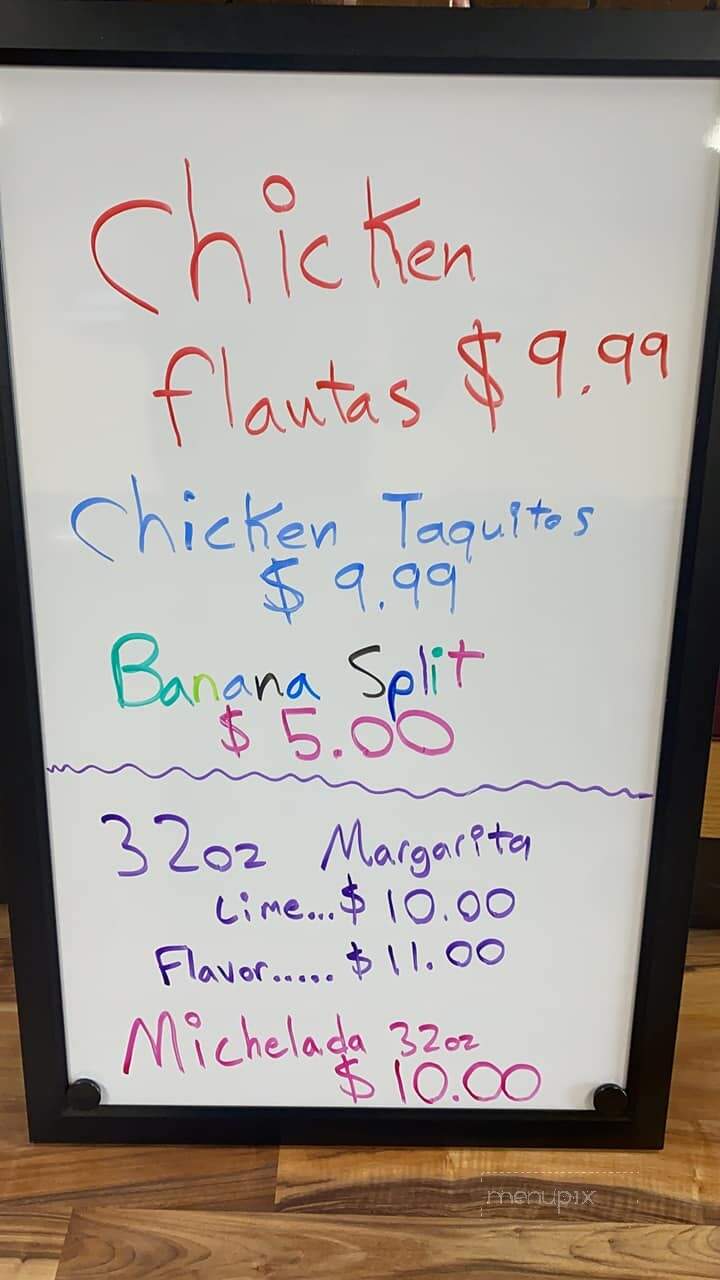 Chicken
flautas $9.99
Chicken Taquitos
$9.99
Banana Split
$5.00
32oz Margarita
Lime...$10.00
Flavor.....$11.00
Michelada 32oz
$10.00
menupix